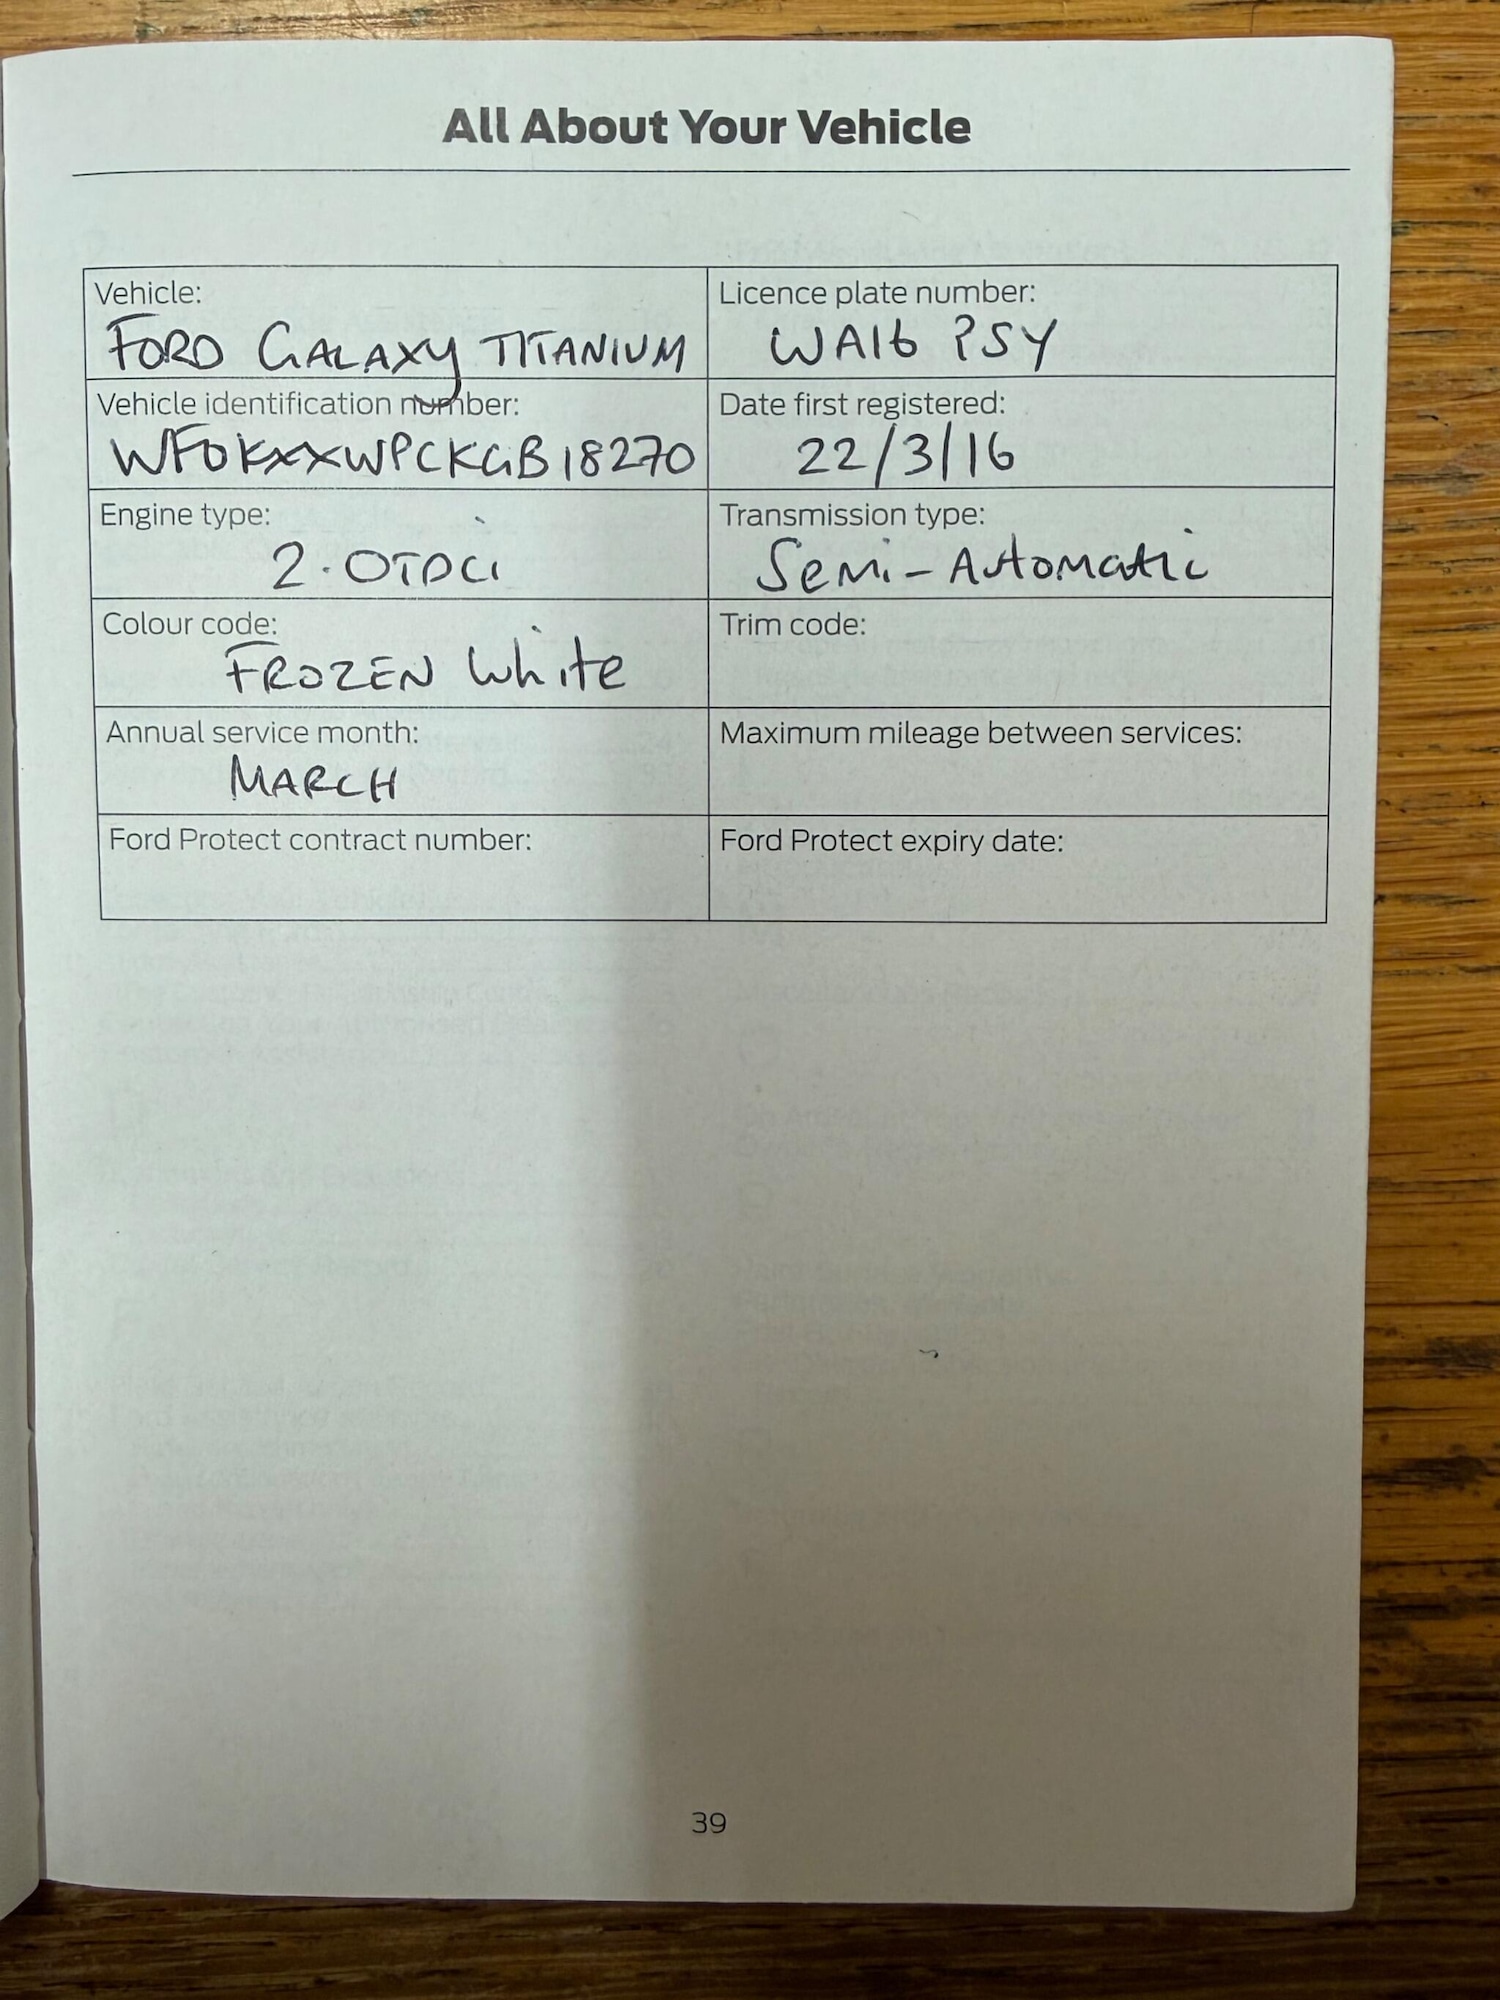 All About Your Vehicle
Vehicle:
FORD GALAXY TITANIUM
Licence plate number:
WA16 PSY
Vehicle identification number:
WF0KXXWPCKGB18270
Date first registered:
22/3/16
Engine type:
2.0TDCi
Transmission type:
Semi-Automatic
Colour code:
FROZEN White
Trim code:
Annual service month:
MARCH
Maximum mileage between services:
Ford Protect contract number:
Ford Protect expiry date:
39